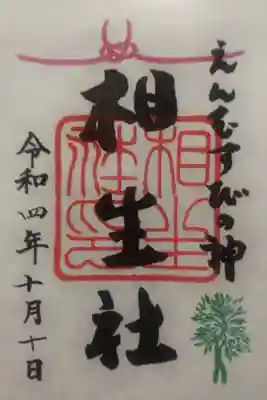 えんむすびの神
相生社
令和四年十月十日